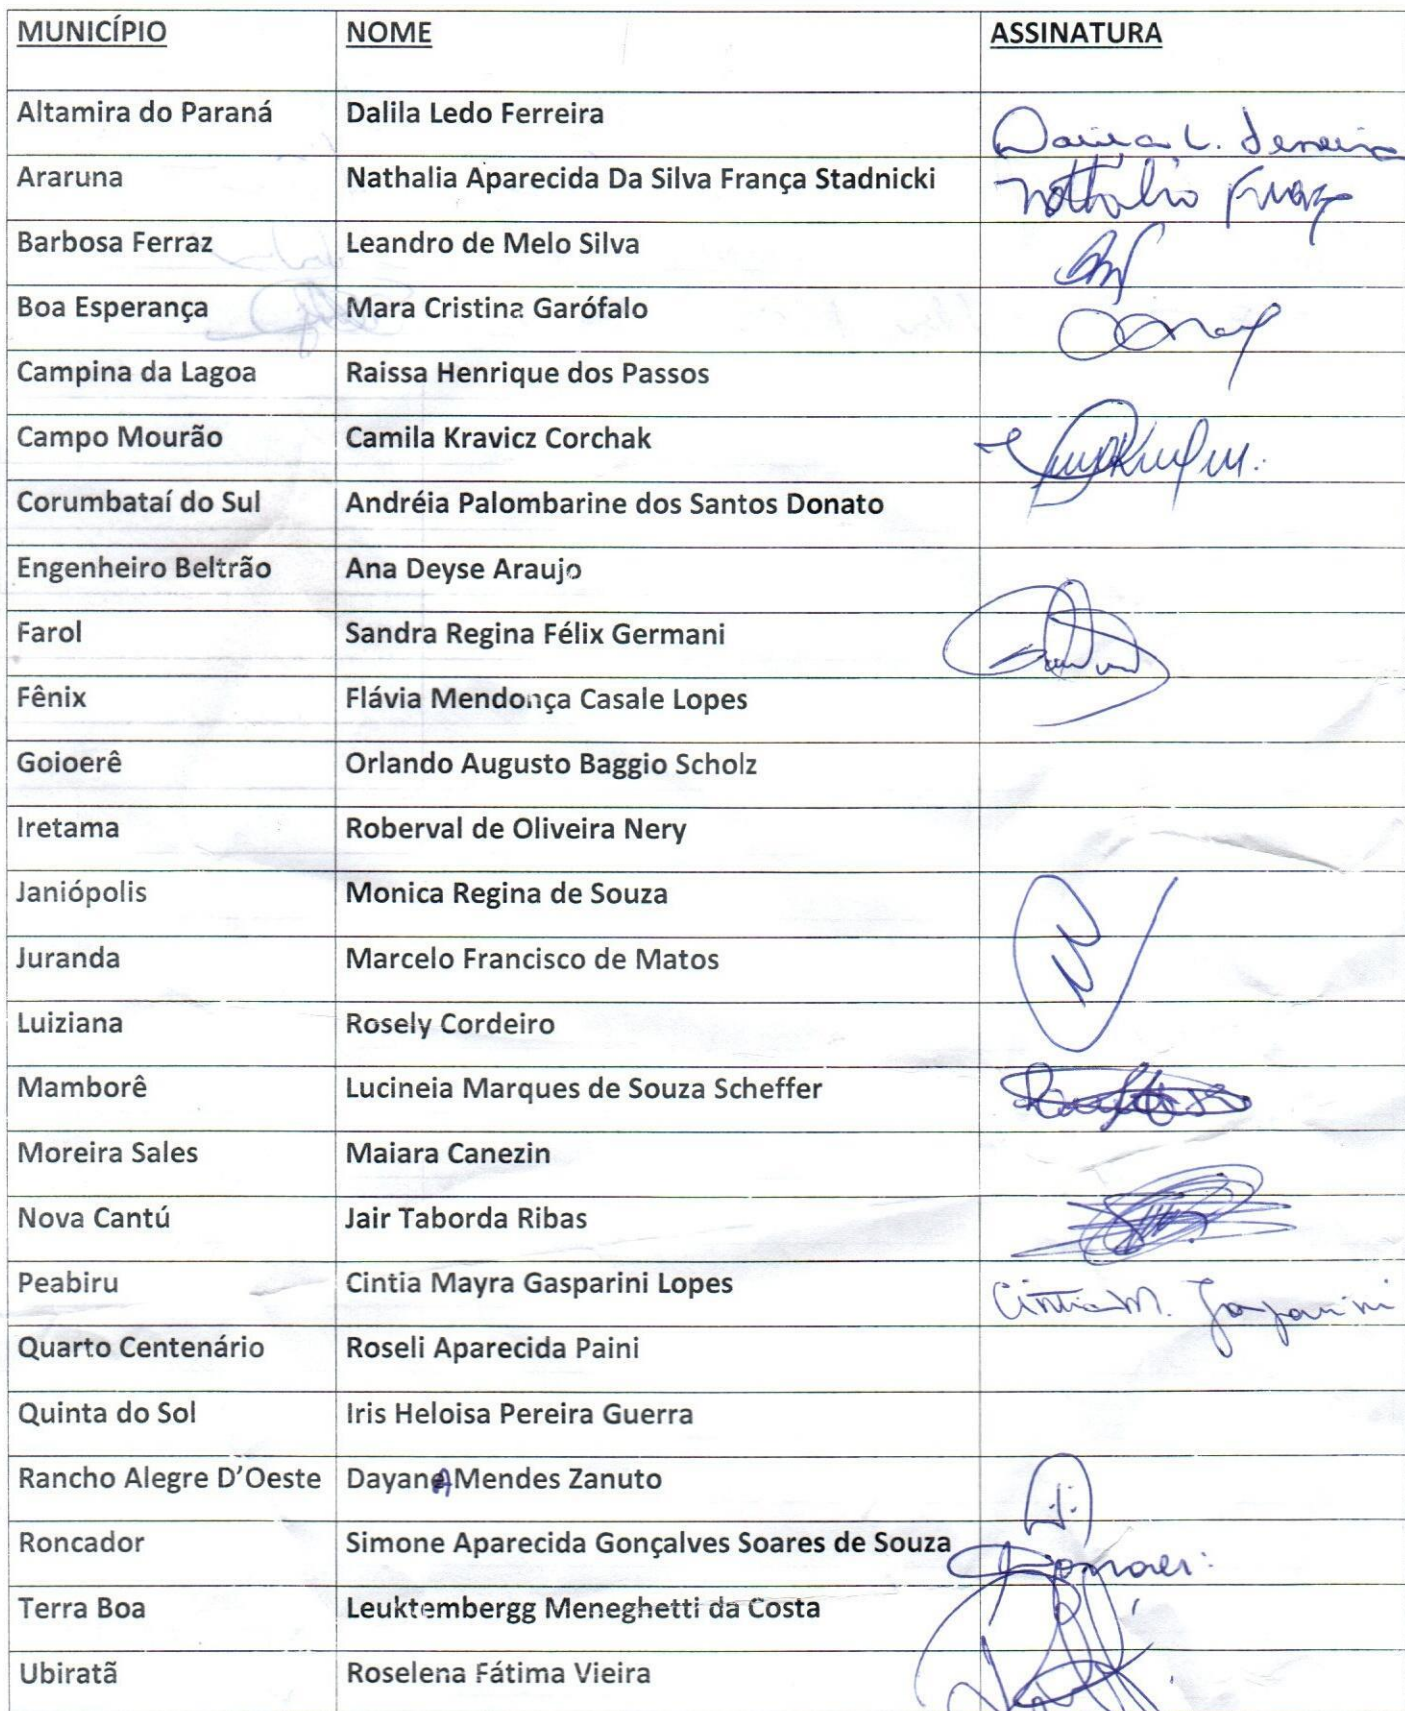 MUNICÍPIO NOME ASSINATURA
Altamira do Paraná Dalila Ledo Ferreira
Araruna Nathalia Aparecida Da Silva França Stadnicki
Barbosa Ferraz Leandro de Melo Silva
Boa Esperança Mara Cristina Garófalo
Campina da Lagoa Raissa Henrique dos Passos
Campo Mourão Camila Kravicz Corchak
Corumbataí do Sul Andréia Palombarine dos Santos Donato
Engenheiro Beltrão Ana Deyse Araujo
Farol Sandra Regina Félix Germani
Fênix Flávia Mendonça Casale Lopes
Goioerê Orlando Augusto Baggio Scholz
Iretama Roberval de Oliveira Nery
Janiópolis Monica Regina de Souza
Juranda Marcelo Francisco de Matos
Luiziana Rosely Cordeiro
Mamborê Lucineia Marques de Souza Scheffer
Moreira Sales Maiara Canezin
Nova Cantú Jair Taborda Ribas
Peabiru Cintia Mayra Gasparini Lopes Cintia M. Gasparini
Quarto Centenário Roseli Aparecida Paini
Quinta do Sol Iris Heloisa Pereira Guerra
Rancho Alegre D'Oeste DayanA Mendes Zanuto
Roncador Simone Aparecida Gonçalves Soares de Souza
Terra Boa Leuktembergg Meneghetti da Costa
Ubiratã Roselena Fátima Vieira